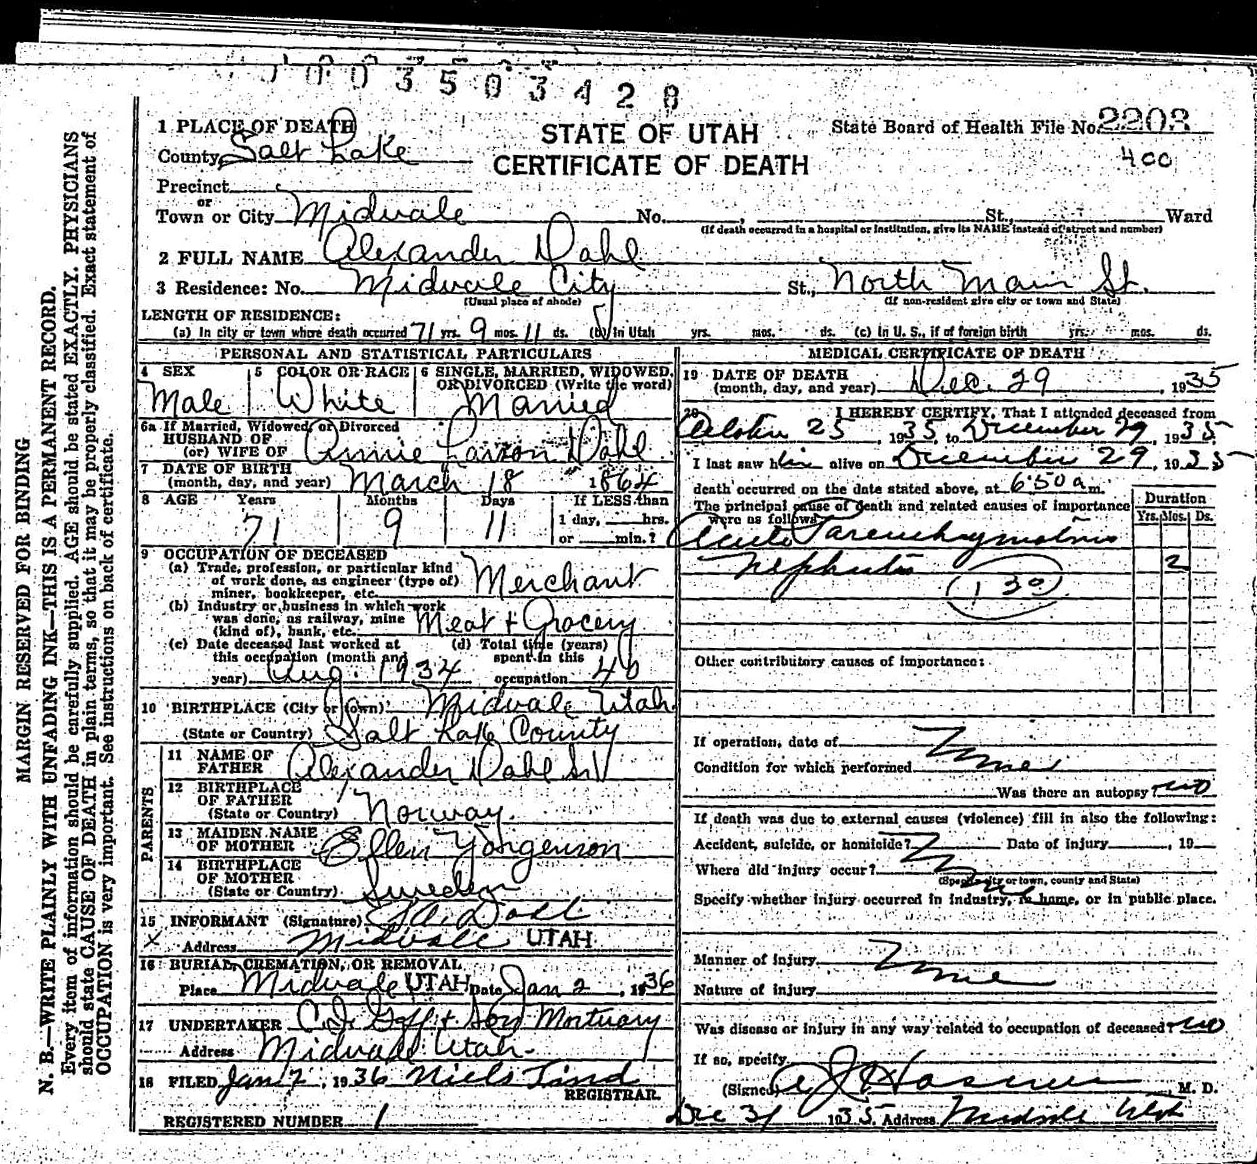 0003503428
1 PLACE OF DEATH
County Salt Lake
STATE OF UTAH
CERTIFICATE OF DEATH
State Board of Health File No. 2203
400
Precinct
or
Town or City Midvale No. , St., Ward
(If death occurred in a hospital or institution, give its NAME instead of street and number)
2 FULL NAME Alexander Dahl
3 Residence: No. Midvale City St., North Main St.
(Usual place of abode) (If non-resident give city or town and State)
LENGTH OF RESIDENCE:
(a) In city or town where death occurred 71 yrs. 9 mos. 11 ds. (b) in Utah yrs. mos. ds. (c) in U. S., if of foreign birth yrs. mos. ds.
PERSONAL AND STATISTICAL PARTICULARS
4 SEX 5 COLOR OR RACE 6 SINGLE, MARRIED, WIDOWED, OR DIVORCED (Write the word)
Male White Married
6a If Married, Widowed, or Divorced
HUSBAND OF
(or) WIFE OF Annie Larson Dahl
7 DATE OF BIRTH
(month, day, and year) March 18 1864
8 AGE Years Months Days If LESS than
71 9 11 1 day, hrs.
or min.?
9 OCCUPATION OF DECEASED
(a) Trade, profession, or particular kind
of work done, as engineer (type of)
miner, bookkeeper, etc. Merchant
(b) Industry or business in which work
was done, as railway, mine
(kind of), bank, etc. Meat + Grocery
(c) Date deceased last worked at (d) Total time (years)
this occupation (month and spent in this
year) Aug. 1934 occupation 40
10 BIRTHPLACE (City or Town) Midvale Utah
(State or Country) Salt Lake County
PARENTS
11 NAME OF
FATHER Alexander Dahl Sr
12 BIRTHPLACE
OF FATHER
(State or Country) Norway.
13 MAIDEN NAME
OF MOTHER Ellen Yorgenson
14 BIRTHPLACE
OF MOTHER
(State or Country) Sweden
15 INFORMANT (Signature) Dahl
X Address Midvale UTAH
16 BURIAL, CREMATION, OR REMOVAL
Place Midvale UTAH Date Jan 2, 1936
17 UNDERTAKER Goff + Son Mortuary
Address Midvale Utah.
18 FILED Jan 2, 1936 Niels Lind
REGISTRAR.
REGISTERED NUMBER 1
MEDICAL CERTIFICATE OF DEATH
19 DATE OF DEATH
(month, day, and year) Dec. 29, 1935
20 I HEREBY CERTIFY, That I attended deceased from
25, 1935 to December 29, 1935
I last saw him alive on December 29, 1935
death occurred on the date stated above, at 6:50 a m.
The principal cause of death and related causes of importance
were as follows: Duration
Yrs. Mos. Ds.
Acute Parenchymatous
nephritis 2
130
Other contributory causes of importance:
If operation, date of
Condition for which performed None
Was there an autopsy? no
If death was due to external causes (violence) fill in also the following:
Accident, suicide, or homicide? Date of injury , 19
Where did injury occur?
(Specify city or town, county and State)
Specify whether injury occurred in industry, in home, or in public place.
Manner of injury None
Nature of injury
Was disease or injury in any way related to occupation of deceased? no
If so, specify
(Signed) M. D.
Dec 31 1935 Address Midvale Utah
MARGIN RESERVED FOR BINDING
N. B.—WRITE PLAINLY WITH UNFADING INK—THIS IS A PERMANENT RECORD.
Every item of information should be carefully supplied. AGE should be stated EXACTLY. PHYSICIANS
should state CAUSE OF DEATH in plain terms, so that it may be properly classified. Exact statement of
OCCUPATION is very important. See instructions on back of certificate.